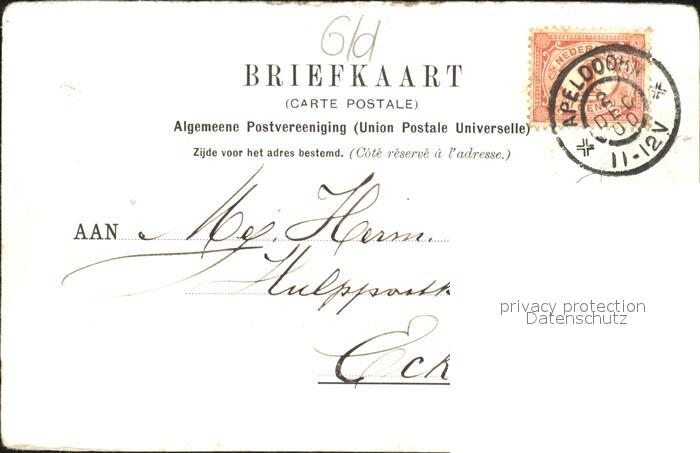 G/d
BRIEFKAART
(CARTE POSTALE)
Algemeene Postvereeniging (Union Postale Universelle)
Zijde voor het adres bestemd. (Côté réservé à l'adresse.)
NEDER
APELDOORN
DEC
11-12V
AAN Mej. Herm.
Hulppostk
Eck
privacy protection
Datenschutz